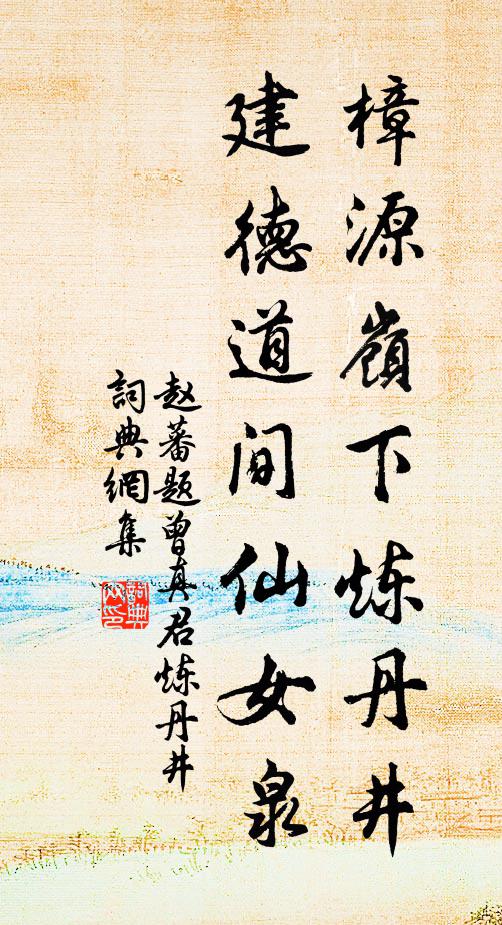 樟源嶺下炼丹井
建德道间仙女泉
赵蕃题曾真君炼丹井
詞典網集